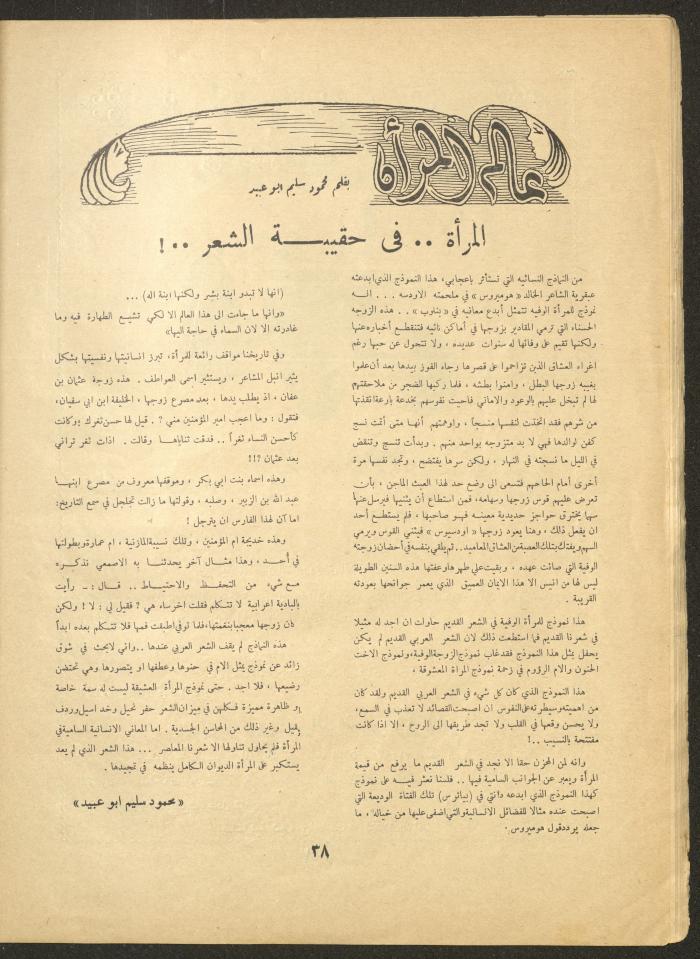 عالم المرأة
بقلم محمود سليم ابو عبيد
المرأة .. فى حقيبة الشعر ..!
من النماذج النسائيه التي تستأثر بإعجابي، هذا النموذج الذي ابدعته
عبقرية الشاعر الخالد «هوميروس» في ملحمته الاودسه ... انه
نموذج للمرأة الوفيه تتمثل أبدع معانيه في «بنلوب» .. هذه الزوجه
الحسناء التي ترمي المقادير بزوجها في أماكن نائيه فتنقطع أخباره عنها
ولكنها تقيم على وفائها له سنوات عديده ، ولا تتحول عن حبها رغم
اغراء العشاق الذين تزاحموا على قصرها رجاء الفوز بيدها بعد أن علموا
بغيبه زوجها البطل ، وامنوا بطشه ، فلما ركبها الضجر من ملاحقتهم
لها لم تبخل عليهم بالوعود والاماني فاحيت نفوسهم بخدعة بارعة انقذتها
من شرهم فقد اتخذت لنفسها منسجاً ، واوهمتهم أنها متى أتمت نسج
كفن لوالدها فهي لا بد متزوجه بواحد منهم . وبدأت تنسج وتنقض
في الليل ما نسجته في النهار ، ولكن سرها يفتضح ، وتجد نفسها مرة
أخرى أمام الحاحهم فتسعى الى وضع حد لهذا العبث الماجن ، بأن
تعرض عليهم قوس زوجها وسهامه، فمن استطاع أن يثنيها فيرسل عنها
سهما يخترق حواجز حديدية معينه فهو صاحبها ، فلم يستطع أحد
ان يفعل ذلك ، وهنا يعود زوجها «اودسيوس» فيثني القوس ويرمي
السهم ويفتك بتلك العصبة من العشاق المعاميد.. ثم يلقي بنفسه في أحضان زوجته
الوفية التي صانت عهده ، وبقيت على طهرها وعفتها هذه السنين الطويلة
ليس لها من انيس الا هذا الايمان العميق الذي يعمر جوانحها بعودته
القريبة .
هذا نموذج للمرأة الوفية في الشعر القديم حاولت ان اجد له مثيلا
في شعرنا القديم فما استطعت ذلك لان الشعر العربي القديم لم يكن
يحفل بمثل هذا النموذج فقد غاب نموذج الزوجة الوفية، ونموذج الاخت
الحنون والام الرؤوم في زحمة نموذج المراة المعشوقة ،
هذا النموذج الذي كان كل شيء في الشعر العربي القديم ولقد كان
من اهميته وسيطرته على النفوس ان اصبحت القصائد لا تعذب في السمع،
ولا يحسن وقعها في القلب ولا تجد طريقها الى الروح ، الا اذا كانت
مفتتحة بالنسيب ..!
وانه لمن المحزن حقا الا نجد في الشعر القديم ما يرفع من قيمة
المرأة ويعبر عن الجوانب السامية فيها .. فلسنا نعثر فيه على نموذج
كهذا النموذج الذي ابدعه دانتي في (بياترس) تلك الفتاة الوديعة التي
اصبحت عنده مثالا للفضائل الانسانية والتي اضفى عليها من خياله ، ما
جعله يردد قول هوميروس .
(انها لا تبدو ابنة بشر ولكنها ابنة اله) ...
«وانها ما جاءت الى هذا العالم الا لكي تشيع الطهارة فيه وما
غادرته الا لان السماء في حاجة اليها»
وفي تاريخنا مواقف رائعة للمرأة، تبرز انسانيتها ونفسيتها بشكل
يثير انبل المشاعر ، ويستثير اسمى العواطف . هذه زوجة عثمان بن
عفان ، اذ يطلب يدها ، بعد مصرع زوجها ، الخليفة ابن ابي سفيان،
فتقول : وما اعجب امير المؤمنين مني ؟ . قيل لها حسن ثغرك وكانت
كأحسن النساء ثغراً .. فدقت ثناياها وقالت . اذات ثغر تراني
بعد عثمان ؟!!
وهذه اسماء بنت ابي بكر ، وموقفها معروف من مصرع ابنها
عبد الله بن الزبير ، وصلبه ، وقولتها ما زالت تجلجل في سمع التاريخ:
اما آن لهذا الفارس ان يترجل !
وهذه خديجة ام المؤمنين ، وتلك نسيبة المازنية ، ام عمارة وبطولتها
في أحد ، وهذا مثال آخر يحدثنا به الاصمعي نذكره
مع شيء من التحفظ والاحتياط .. قال :ـ رأيت
بالبادية اعرابية لا تتكلم فقلت اخرساء هي ؟ فقيل لي : لا ! ولكن
كان زوجها معجبا بنغمتها، فلما توفي اطبقت فمها فلا تتكلم بعده ابداً
هذه النماذج لم يقف الشعر العربي عندها .. واني لابحث في شوق
زائد عن نموذج يمثل الام في حنوها وعطفها او يتصورها وهي تحتضن
رضيعها ، فلا اجد . حتى نموذج المرأة العشيقة ليست له سمة خاصة
او ظاهرة مميزة فكلهن في ميزان الشعر خصر نحيل وخد اسيل وردف
ثقيل وغير ذلك من المحاسن الجسدية . اما المعاني الانسانية السامية في
المرأة فلم يحاول تناولها الا شعرنا المعاصر ... هذا الشعر الذي لم يعد
يستكبر على المرأة الديوان الكامل ينظمه في تمجيدها .
«محمود سليم ابو عبيد»
٣٨